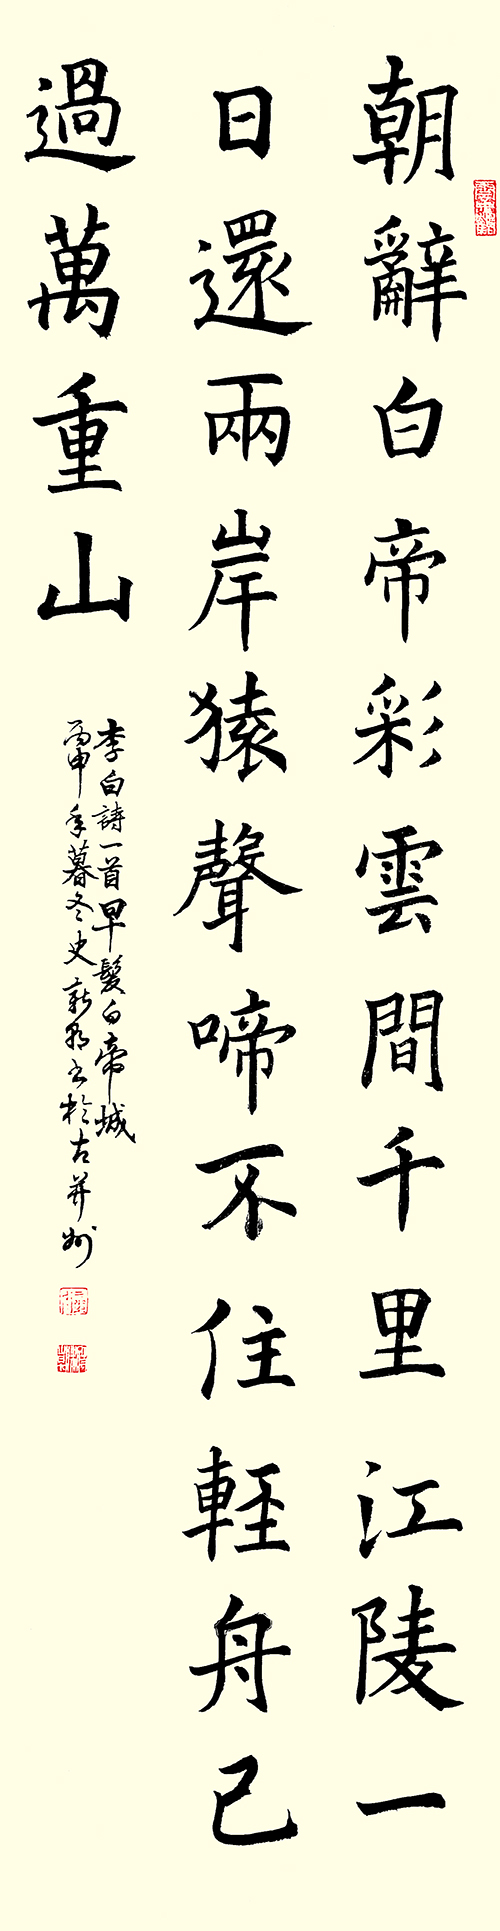 朝辭白帝彩雲間千里江陵一
日還兩岸猿聲啼不住輕舟已
過萬重山
李白詩一首早髮白帝城
丙申年暮冬史新驹書於古并州